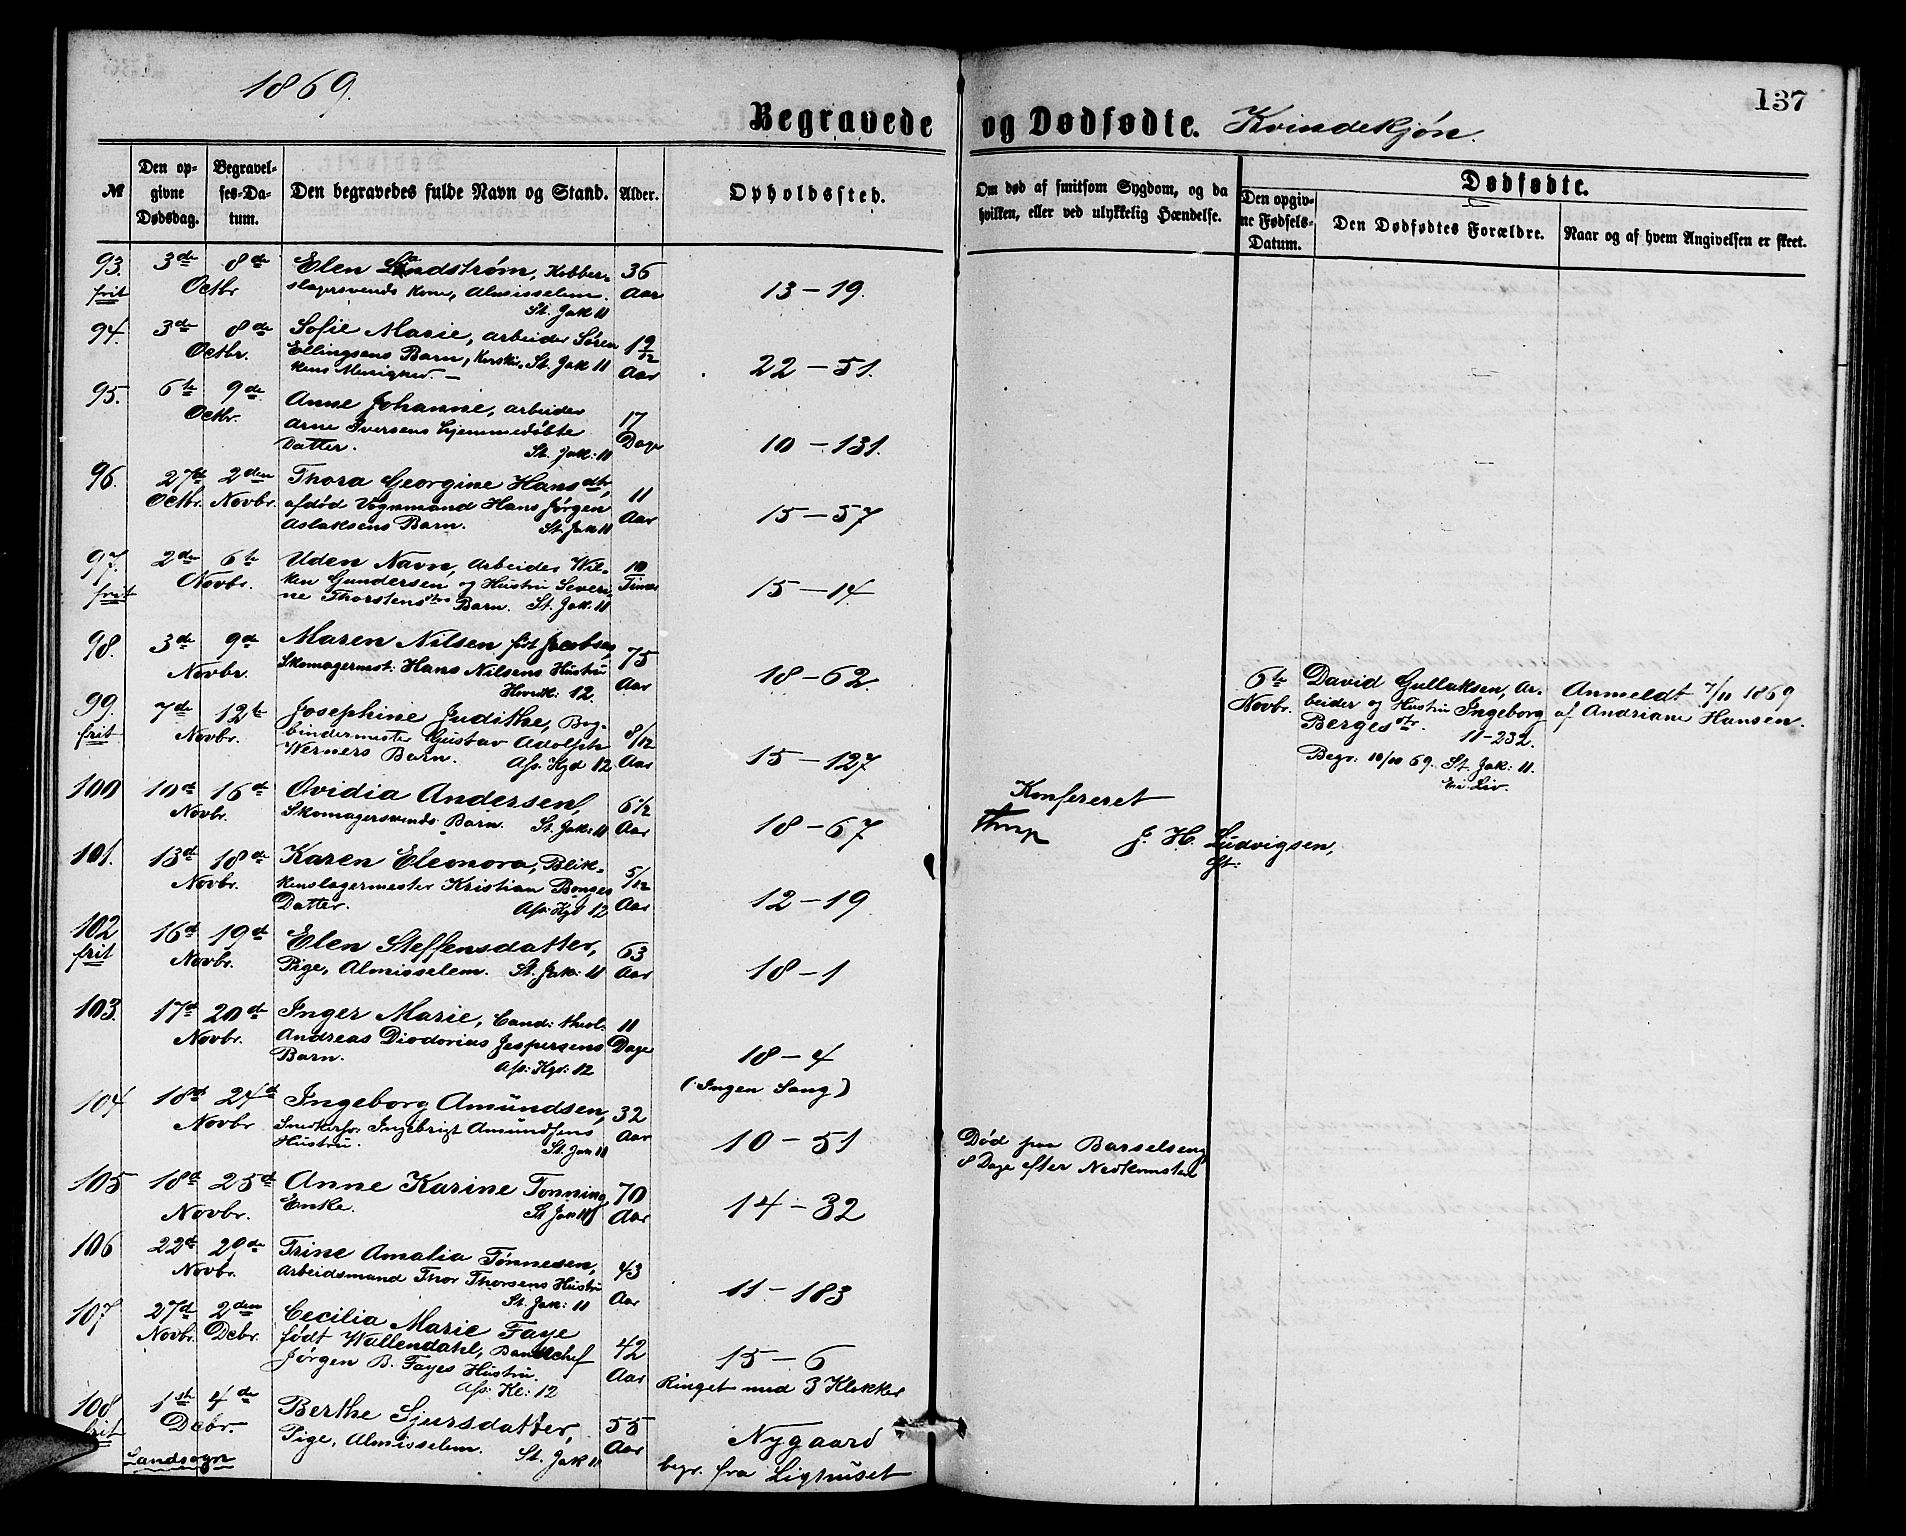 1869.
137
Begravede og Dødfødte. Kvindekjøn.
№
Den opgivne Dødsdag.
Begravelses-Datum.
Den begravedes fulde Navn og Stand.
Alder.
Opholdssted.
Om død af smitsom Sygdom, og da hvilken, eller ved ulykkelig Hændelse.
Dødfødte.
Den opgivne Fødsels-Datum.
Den Dødfødtes Forældre.
Naar og af hvem Angivelsen er skeet.
93. 3de 8de Elen Landstrøm, Kobber- 36
frit Octbr slagersvends Kone, Almisselem. Aar 13-19.
St. Jak 11
94. 3de 8de Sofie Marie, Arbeider Søren 1 9/12
Octbr. Ellingsens Barn, St. Jak 11 Aar 22-51.
kens Menighed.
95. 6te 9de Anne Johanne, Arbeider 17
Octbr. Arne Iversens hjemmedøbte Dage 10-131.
Datter. St. Jak: 11
96. 27d 2den Thora Georgine Hansdtr, 11
Octbr. Novbr. afdød Vognmand Hans Jørgen Aar 15-57
Aslaksens Barn. St. Jak 11
97. 2den 6te Uden Navn, Arbeider Wil- 10
frit Novbr. ken Gundersen og Hustru Severi- Timer 15-14.
ne Thorstensdtrs Barn. St. Jak: 11
98. 3de 9de Maren Nilsen født Jacobsen, 75
Novbr. Skomagermst: Hans Nilsens Hustru Aar 18-62.
12.
99. 7de 12te Josephine Judithe, Bog- 8/12
frit Novbr. bindermester Gustav Adolph Aar 15-127
Werners Barn. Ass. Kgd 12
6te Novbr. David Gullaksen, Ar-
beider og Hustru Ingeborg
Bergesdtr. 11-232.
Begr: 10/10 69. St. Jak: 11.
Ei Liv.
Anmeldt 7/11 1869
af Andriane Hansen.
100 10de 16de Ovidia Andersen, 6 1/2
Novbr. Skomagersvends Barn. St. Jak: 11 Aar 18-67
Konfereret
Thrap J. H. Ludvigsen,
101. 13de 18de Karen Eleonora, Blik- 5/12
Novbr. kenslagermester Kristian Bonges Aar 12-19
Datter. Ass: Kgd 12
102 16de 19de Elen Steffensdatter, 63
frit Novbr. Pige, Almisselem. St. Jak: 11 Aar 18-1
103. 17de 20de Inger Marie, Cand: theol: 11
Novbr. Andreas Diodorius Jespersens Dage 18-4
Barn. Ass: Kgd: 12 (Ingen Sang)
104 18de 24de Ingeborg Amundsen, 32
Novbr Snedkersv. Ingebrigt Amundsens Aar 10-51
Hustru. St. Jak 11
Død paa Barselseng
8 Dage efter Nedkomsten
105 18de 25de Anne Karine Tonning 70
Novbr. Enke. St Jak 11 Aar 14-32
106 22de 29de Trine Amalia Tønnesen, 43
Novbr. Arbeidsmand Thor Thorsens Hustru Aar 11-183
St. Jak: 11
107 27d 2den Cecilia Marie Faye 42
Novbr. Debr. født Wallendahl, Bankchef Aar 15-6
Jørgen B. Fayes Hustru. Ringet med 3 Klokker
Ass: Kl: 12
108 1ste 4de Berthe Sjursdatter, 55
frit Debr. Pige, Almisselem. St. Jak 11 Aar Nygaard
Landsogn begr. fra Lighuset